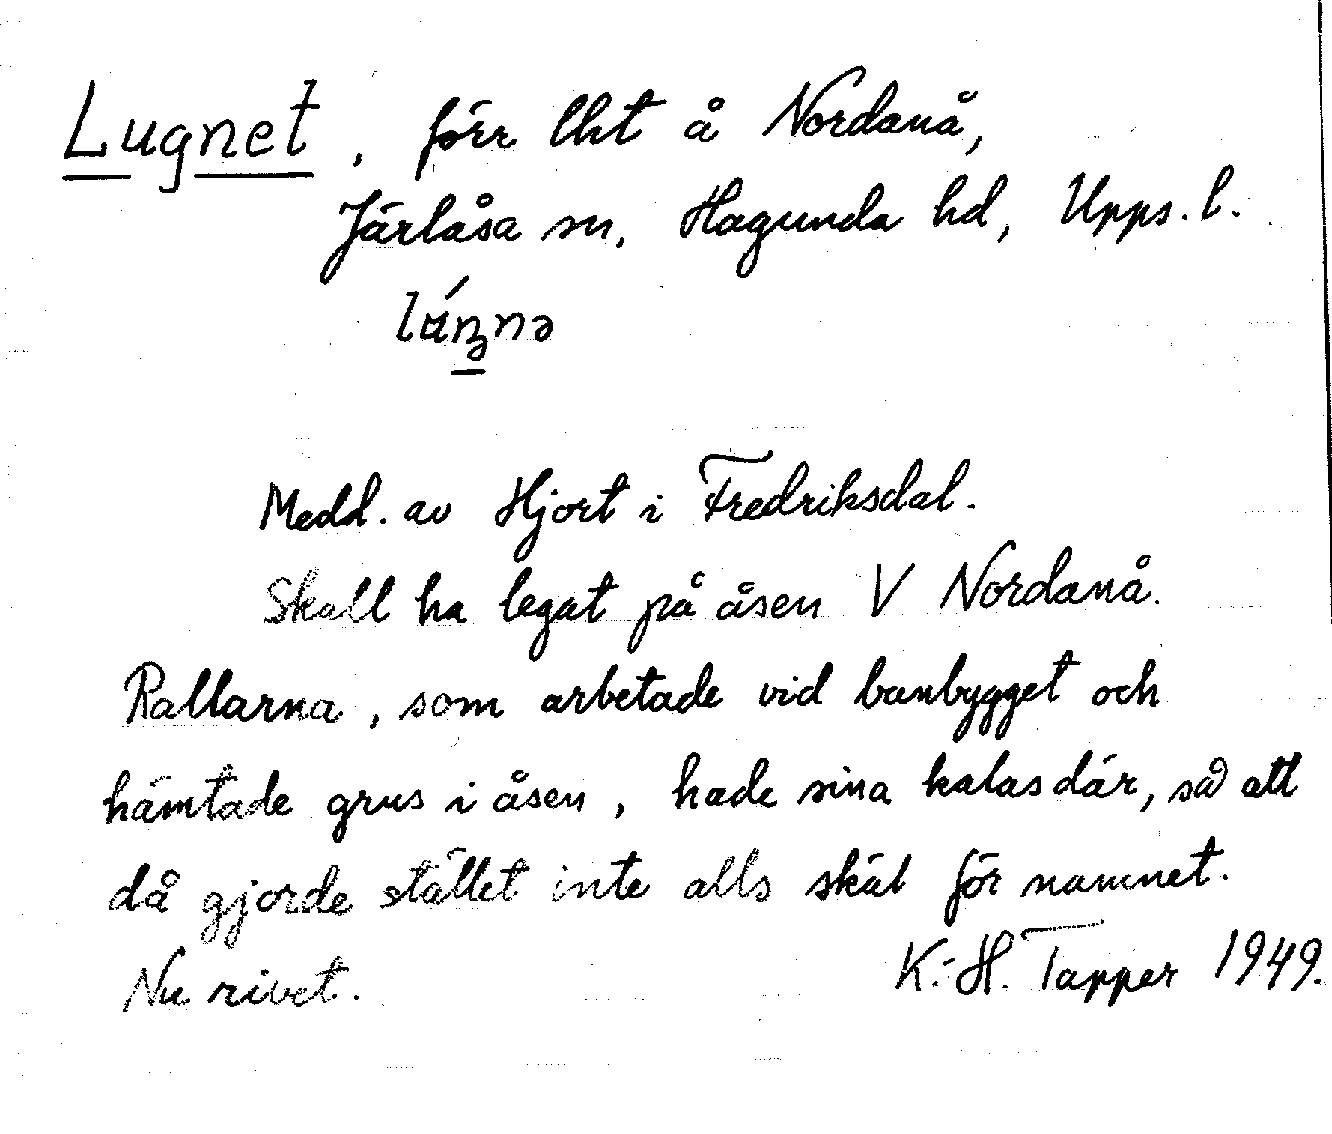 Lugnet, förr lht å Nordanå,
Järlåsa sn, Hagunda hd, Upps. l.
Medd. av Hjort i Fredriksdal.
Skall ha legat på åsen V Nordanå.
Rallarna, som arbetade vid banbygget och
hämtade grus i åsen, hade sina kalas där, så att
då gjorde stället inte alls skäl för namnet.
Nu rivet. K.-H. Tapper 1949.